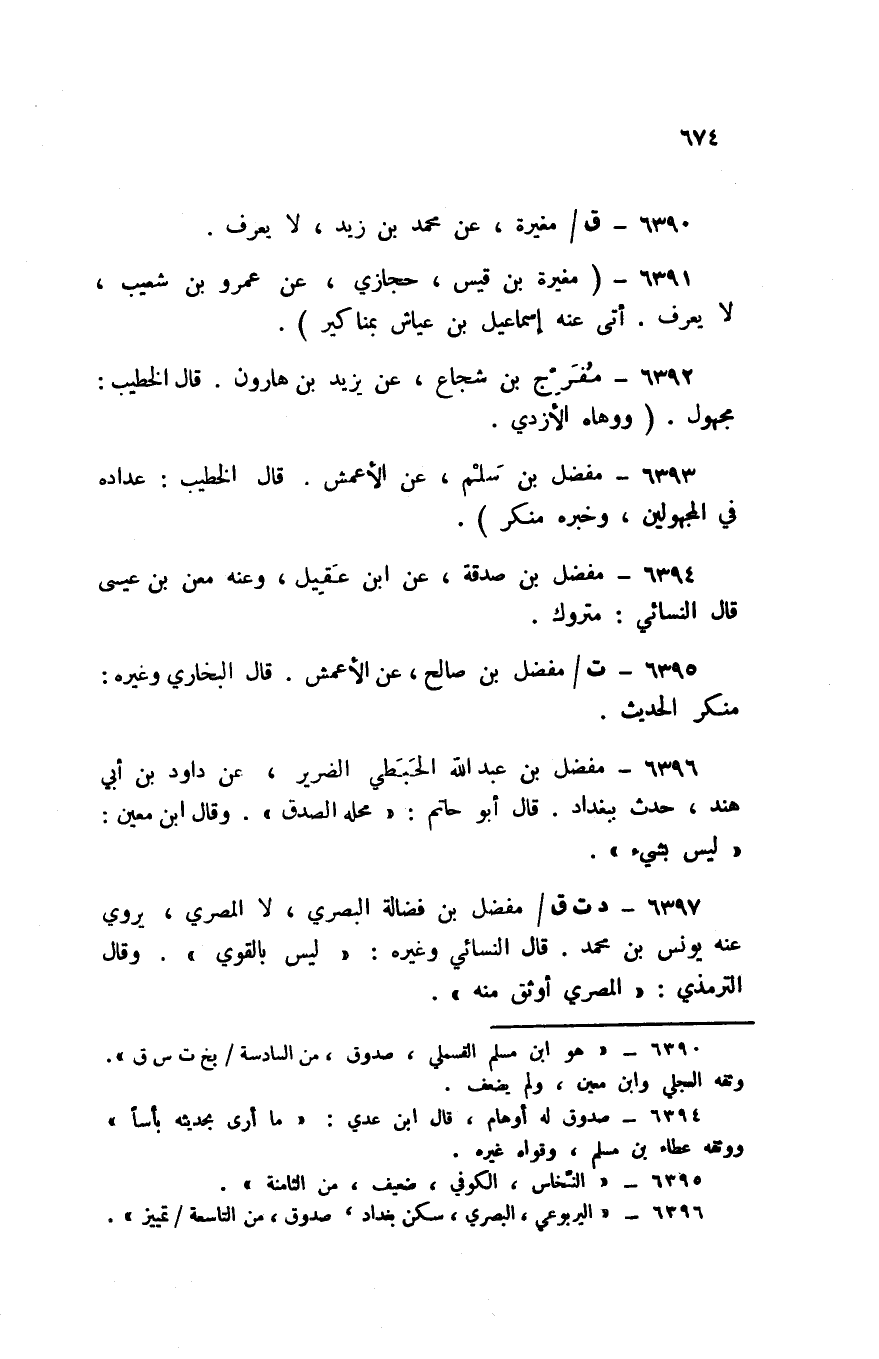 ٦٧٤
٦٣٩٠ – ق/ مغيرة ، عن محمد بن زيد ، لا يعرف .
٦٣٩١ – ( مغيرة بن قيس ، حجازي ، عن عمرو بن شعيب ،
لا يعرف . أتى عنه إسماعيل بن عياش بمناكير ) .
٦٣٩٢ – مُفَرِّج بن شجاع ، عن يزيد بن هارون . قال الخطيب :
مجهول . ( ووهاه الأزدي .
٦٣٩٣ – مفضل بن سَلْم ، عن الأعمش . قال الخطيب : عداده
في المجهولين ، وخبره منكر ) .
٦٣٩٤ – مفضل بن صدقة ، عن ابن عَقِيل ، وعنه معن بن عيسى
قال النسائي : متروك .
٦٣٩٥ – ت/ مفضل بن صالح ، عن الأعمش . قال البخاري وغيره :
منكر الحديث .
٦٣٩٦ – مفضل بن عبد الله الحَبَطي الضرير ، عن داود بن أبي
هند ، حدث ببغداد . قال أبو حاتم : « محله الصدق » . وقال ابن معين :
« ليس بشيء » .
٦٣٩٧ – د ت ق/ مفضل بن فضالة البصري ، لا المصري ، يروي
عنه يونس بن محمد . قال النسائي وغيره : « ليس بالقوي » . وقال
الترمذي : « المصري أوثق منه » .
٦٣٩٠ – « هو ابن مسلم القسملي ، صدوق ، من السادسة / بخ ت س ق » .
وثقه العجلي وابن معين ، ولم يضعف .
٦٣٩٤ – صدوق له أوهام ، قال ابن عدي : « ما أرى بحديثه بأساً »
ووثقه عطاء بن مسلم ، وقواه غيره .
٦٣٩٥ – « النّخاس ، الكوفي ، ضعيف ، من الثامنة » .
٦٣٩٦ – « اليربوعي ، البصري ، سكن بغداد ، صدوق ، من التاسعة / تمييز » .